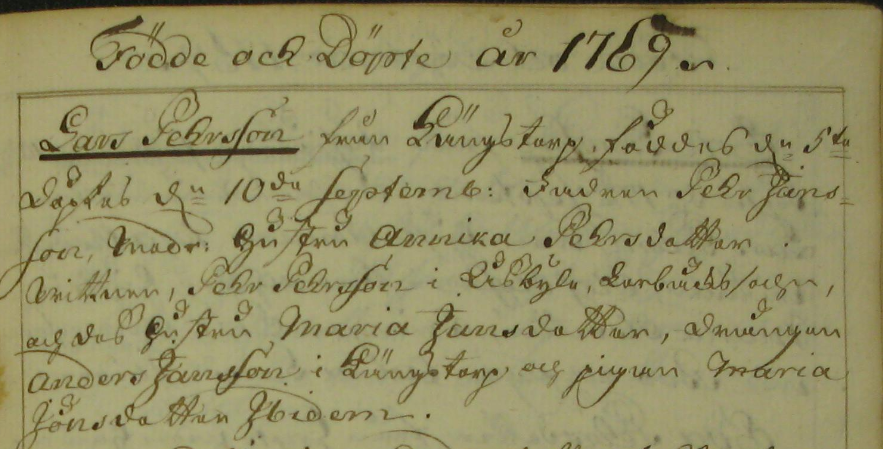 Födde och Döpte år 1769.
Lars Pehrsson från Kungstorp, föddes dn 5te
döptes dn 10de Septemb: Fadren Pehr Jans=
son, Modr: Hustru Annika Pehrsdotter.
Vittnen, Pehr Pehrsson i
och des Hustru Maria Jansdotter, drängen
Anders Jansson i Kungstorp och pigan Maria
Jönsdotter Ibidem.